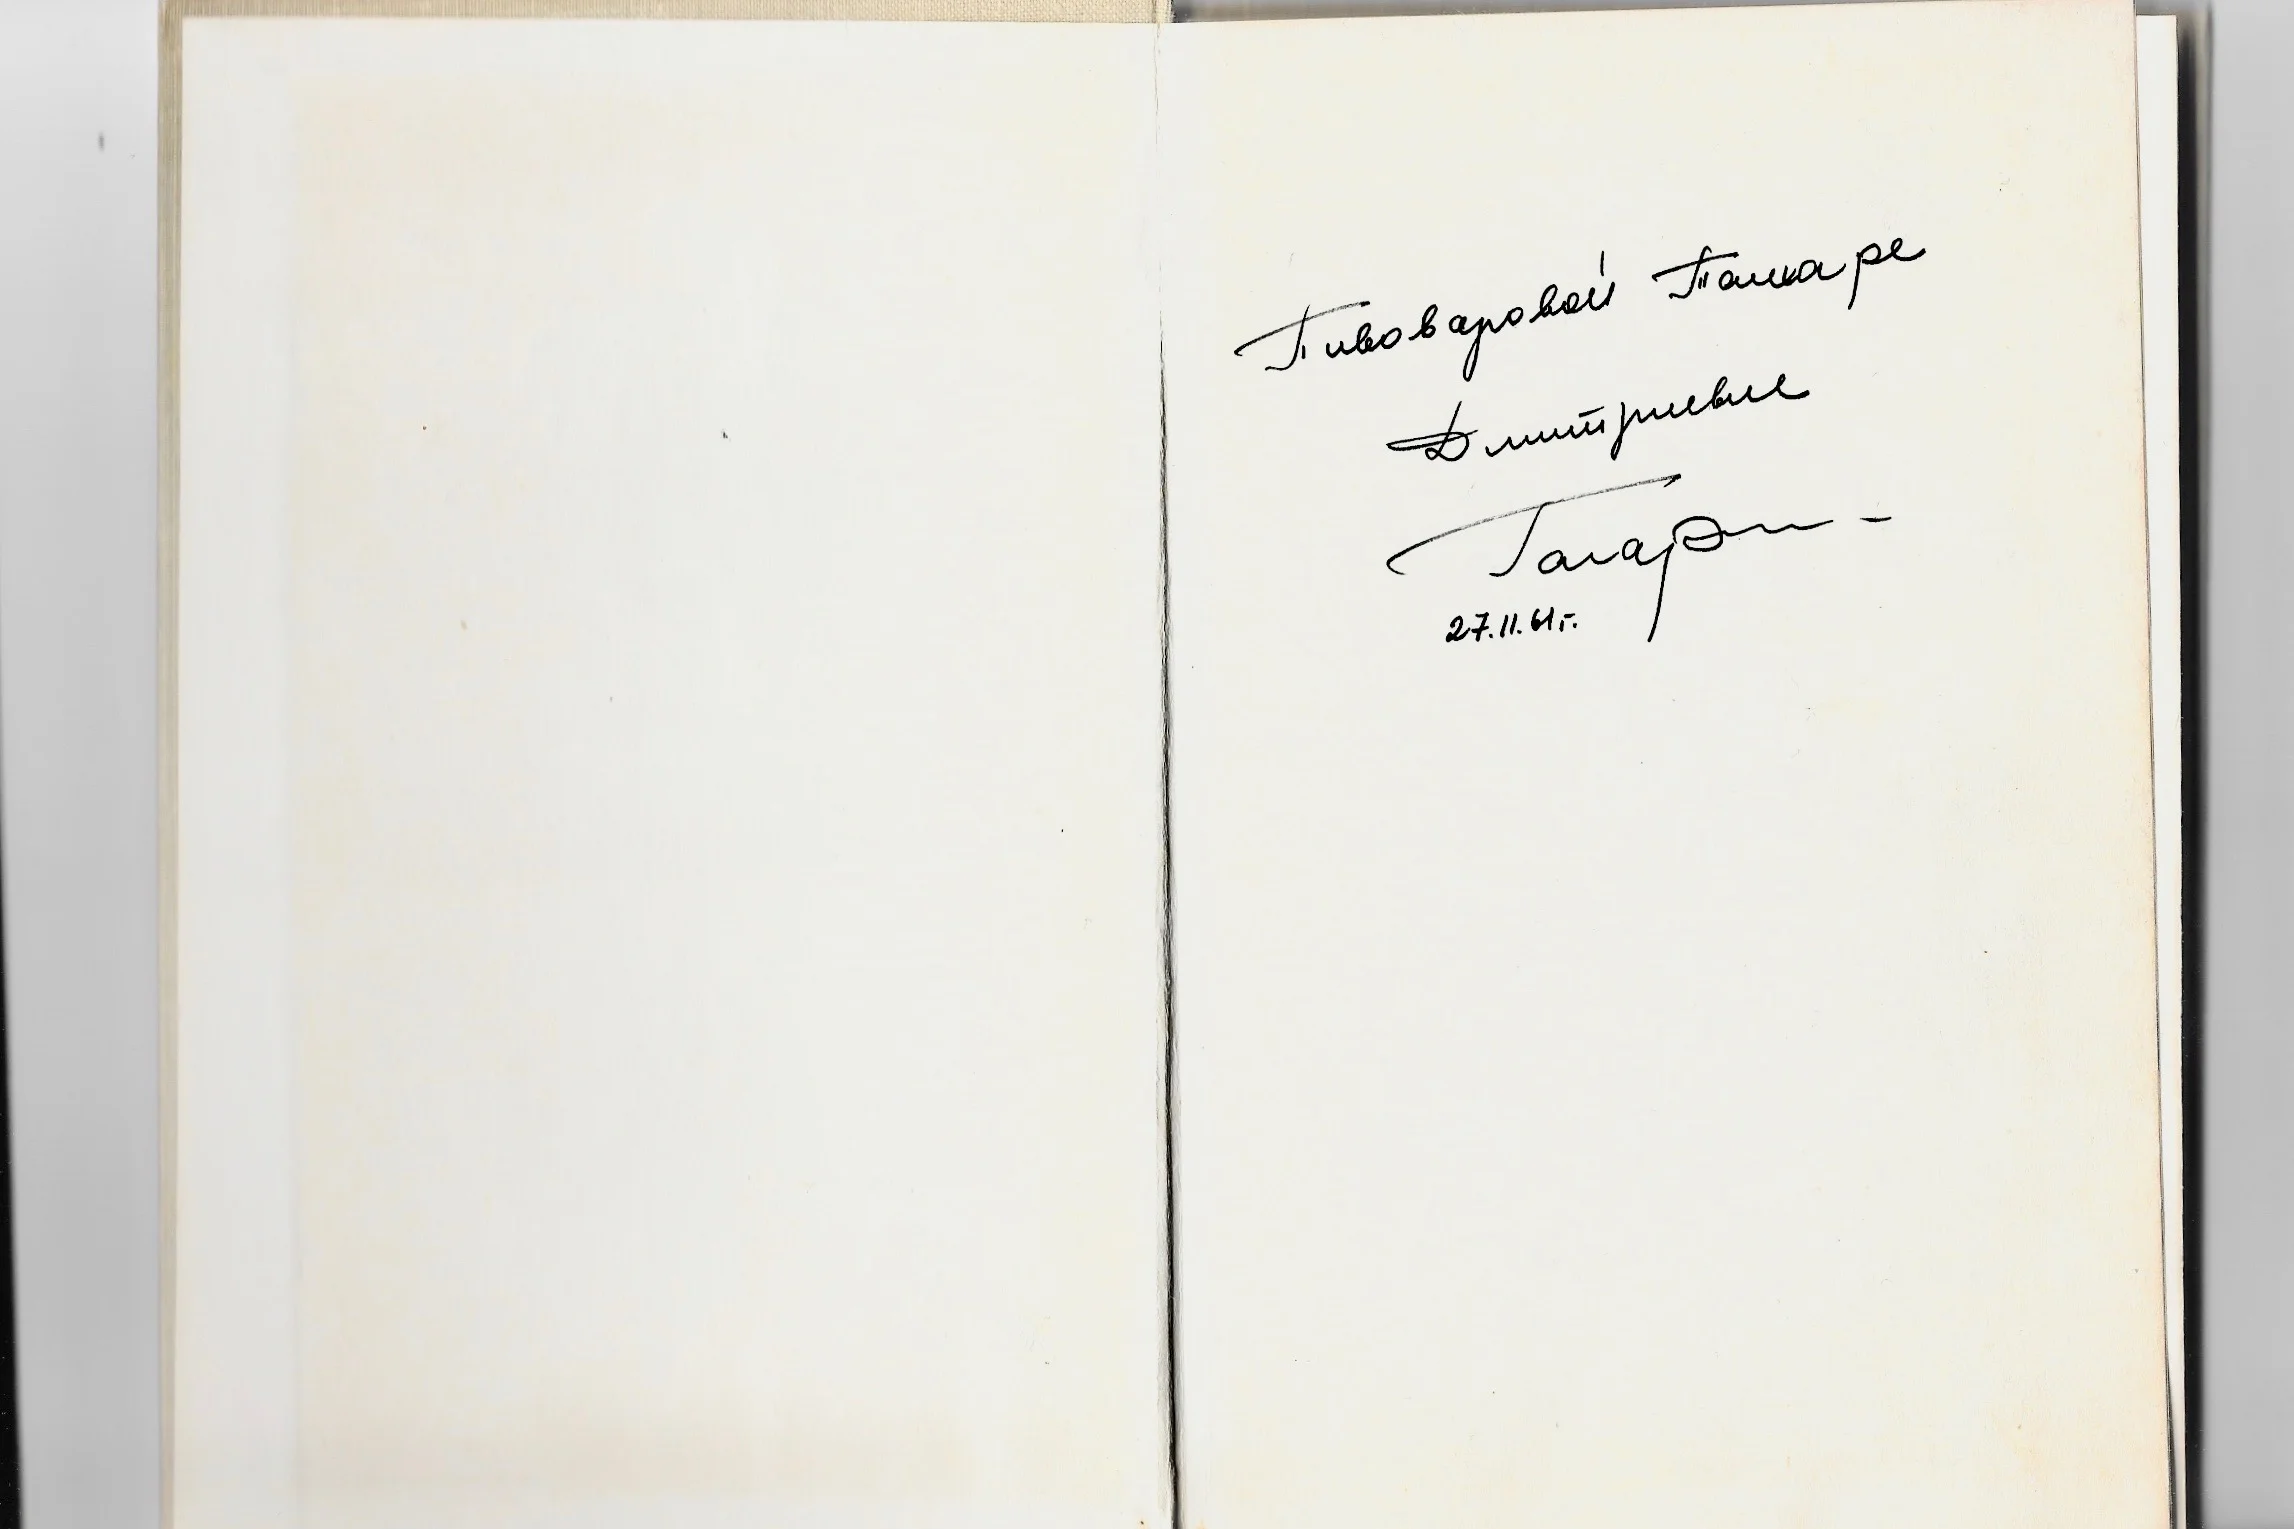 Пивоваровой Тамаре
Дмитриевне
Гагарин
27.11.61г.